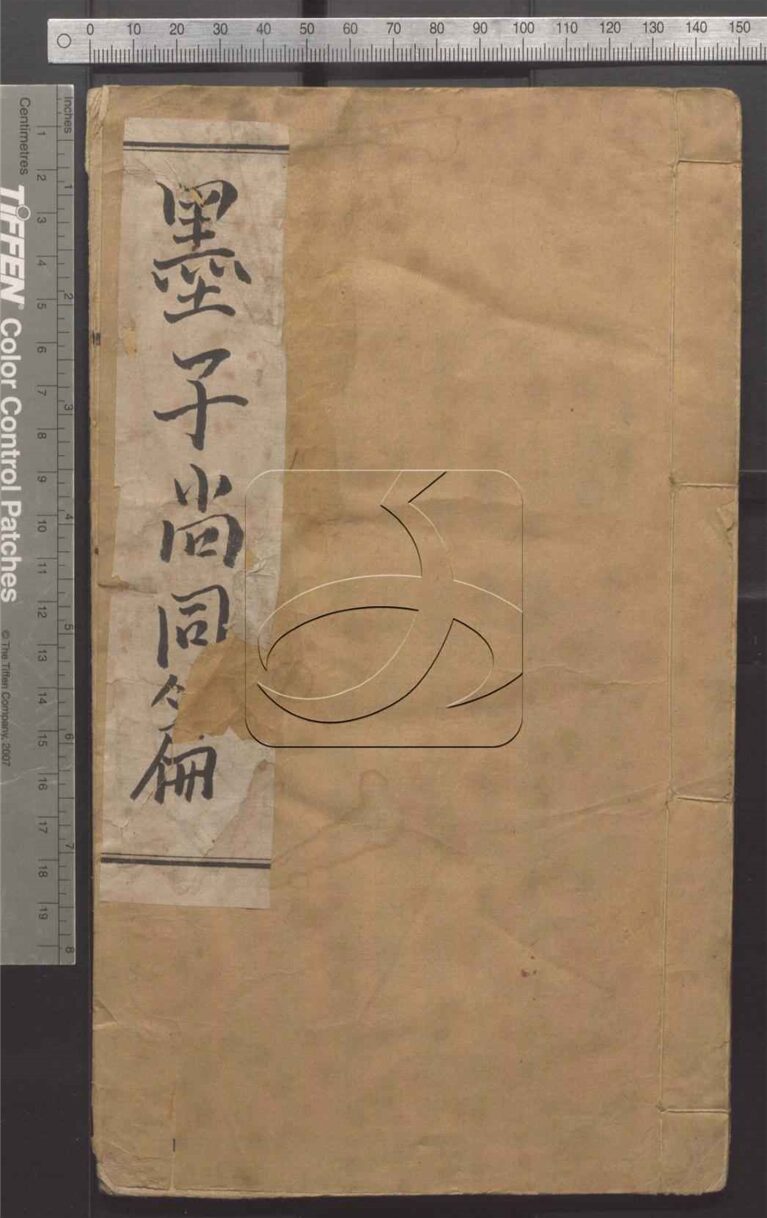 0 10 20 30 40 50 60 70 80 90 100 110 120 130 140 150
墨子尚同
Inches 1 2 3 4 5 6 7 8
Centimetres 1 2 3 4 5 6 7 8 9 10 11 12 13 14 15 16 17 18 19
TIFFEN Color Control Patches © The Tiffen Company, 2007